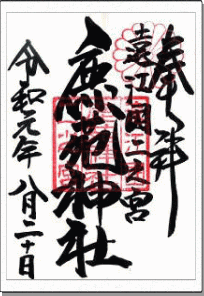 奉拝
遠江国二之宮
鹿苑神社
令和元年 八月二十日